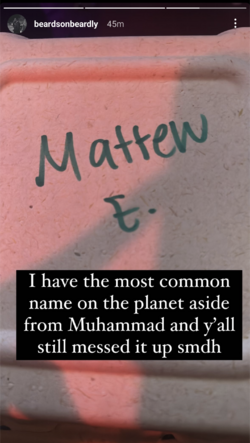 beardsonbeardly 45m
Mattew
E.
I have the most common
name on the planet aside
from Muhammad and y'all
still messed it up smdh